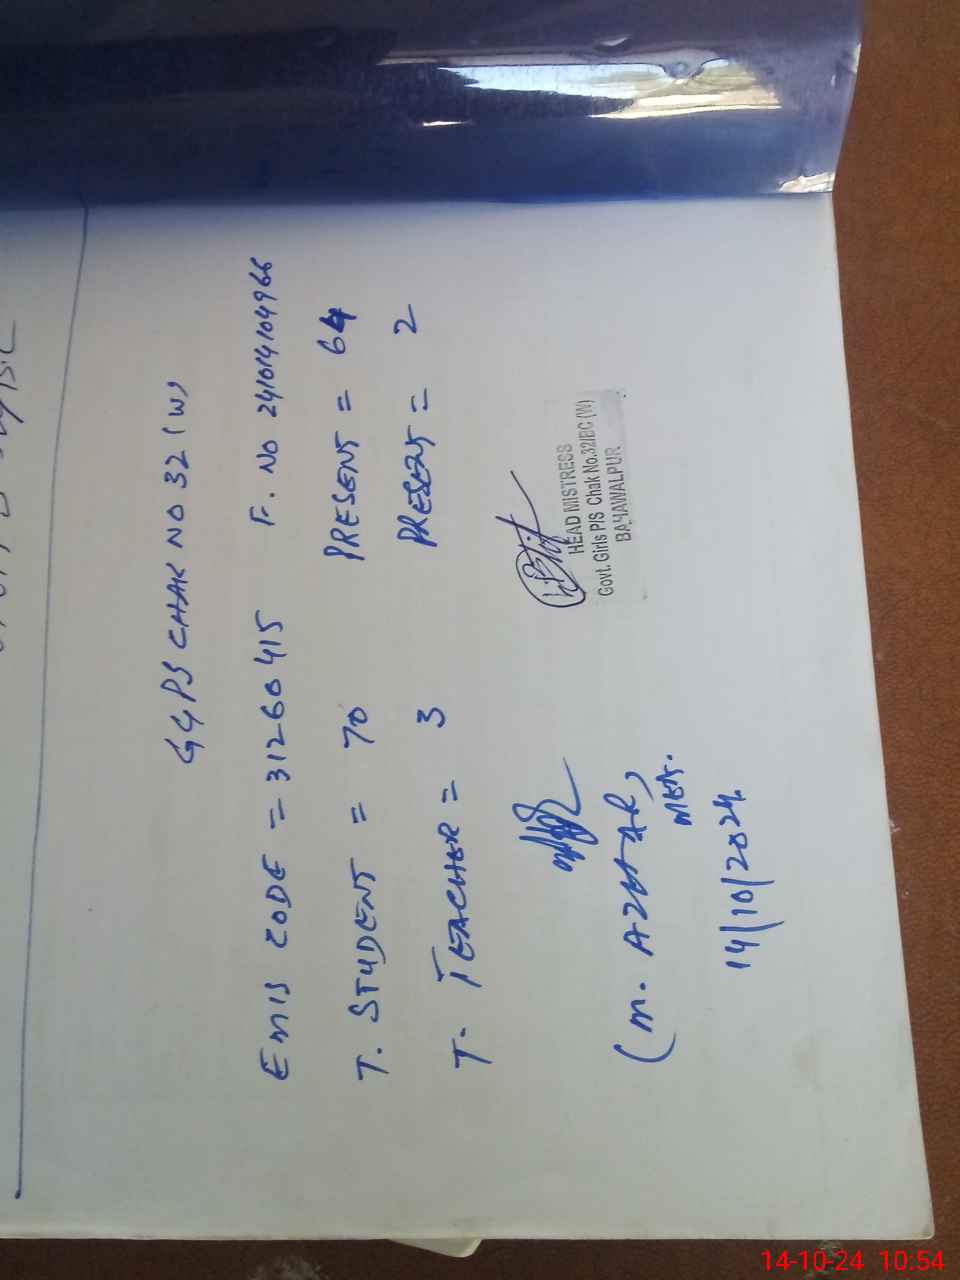 GGPS CHAK NO 32 (W)
EMIS CODE = 31260415 F. NO 241014104966
T. STUDENT = 70 PRESENT = 64
T. TEACHER = 3 PRESENT = 2
HEAD MISTRESS
Govt. Girls P/S Chak No.32/BC (W)
BAHAWALPUR
(M. AZHAR)
MEA.
14/10/2024
14-10-24 10:54